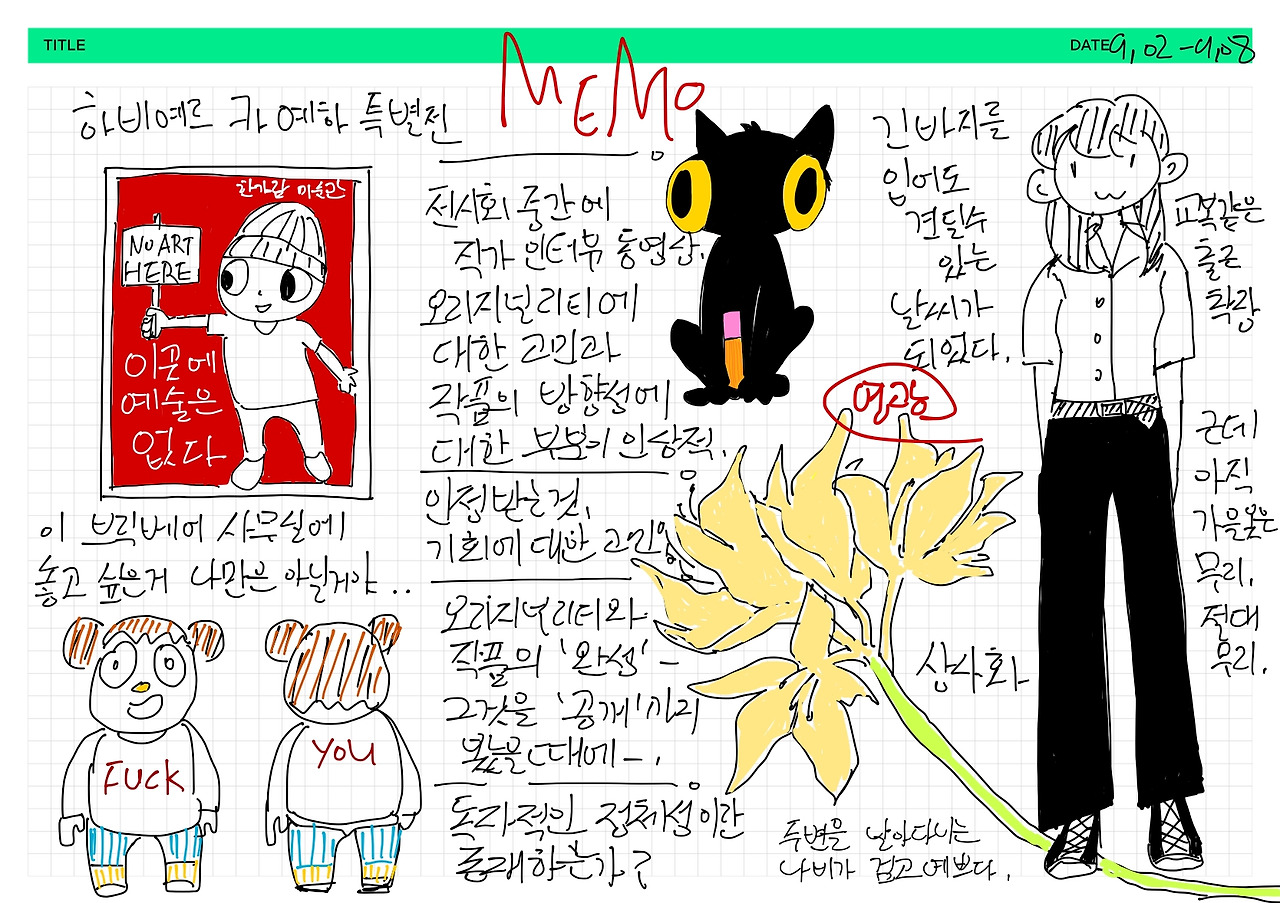 TITLE
DATE 9.02 - 9.08
MEMO
하비에르 카예하 특별전
한가람 미술관
NO ART
HERE
이곳에
예술은
없다
이 브릭베어 사무실에
놓고 싶은거 나만은 아닐게야..
FUCK
YOU
전시회 중간에
작가 인터뷰 동영상.
오리지널리티에
대한 고민과
작품의 방향성에
대한 부분이 인상적.
인정받는것,
기회에 대한 고민
오리지널리티와
작품의 '완성' -
그것을 '공개'까지
봤을때에 - .
독자적인 정체성이란
존재하는가?
긴바지를
입어도
견딜수
있는
날씨가
되었다.
교복같은
출근
착장
근데
아직
가을옷은
무리.
절대
무리.
상사화
주변을 날아다니는
나비가 검고 예쁘다.